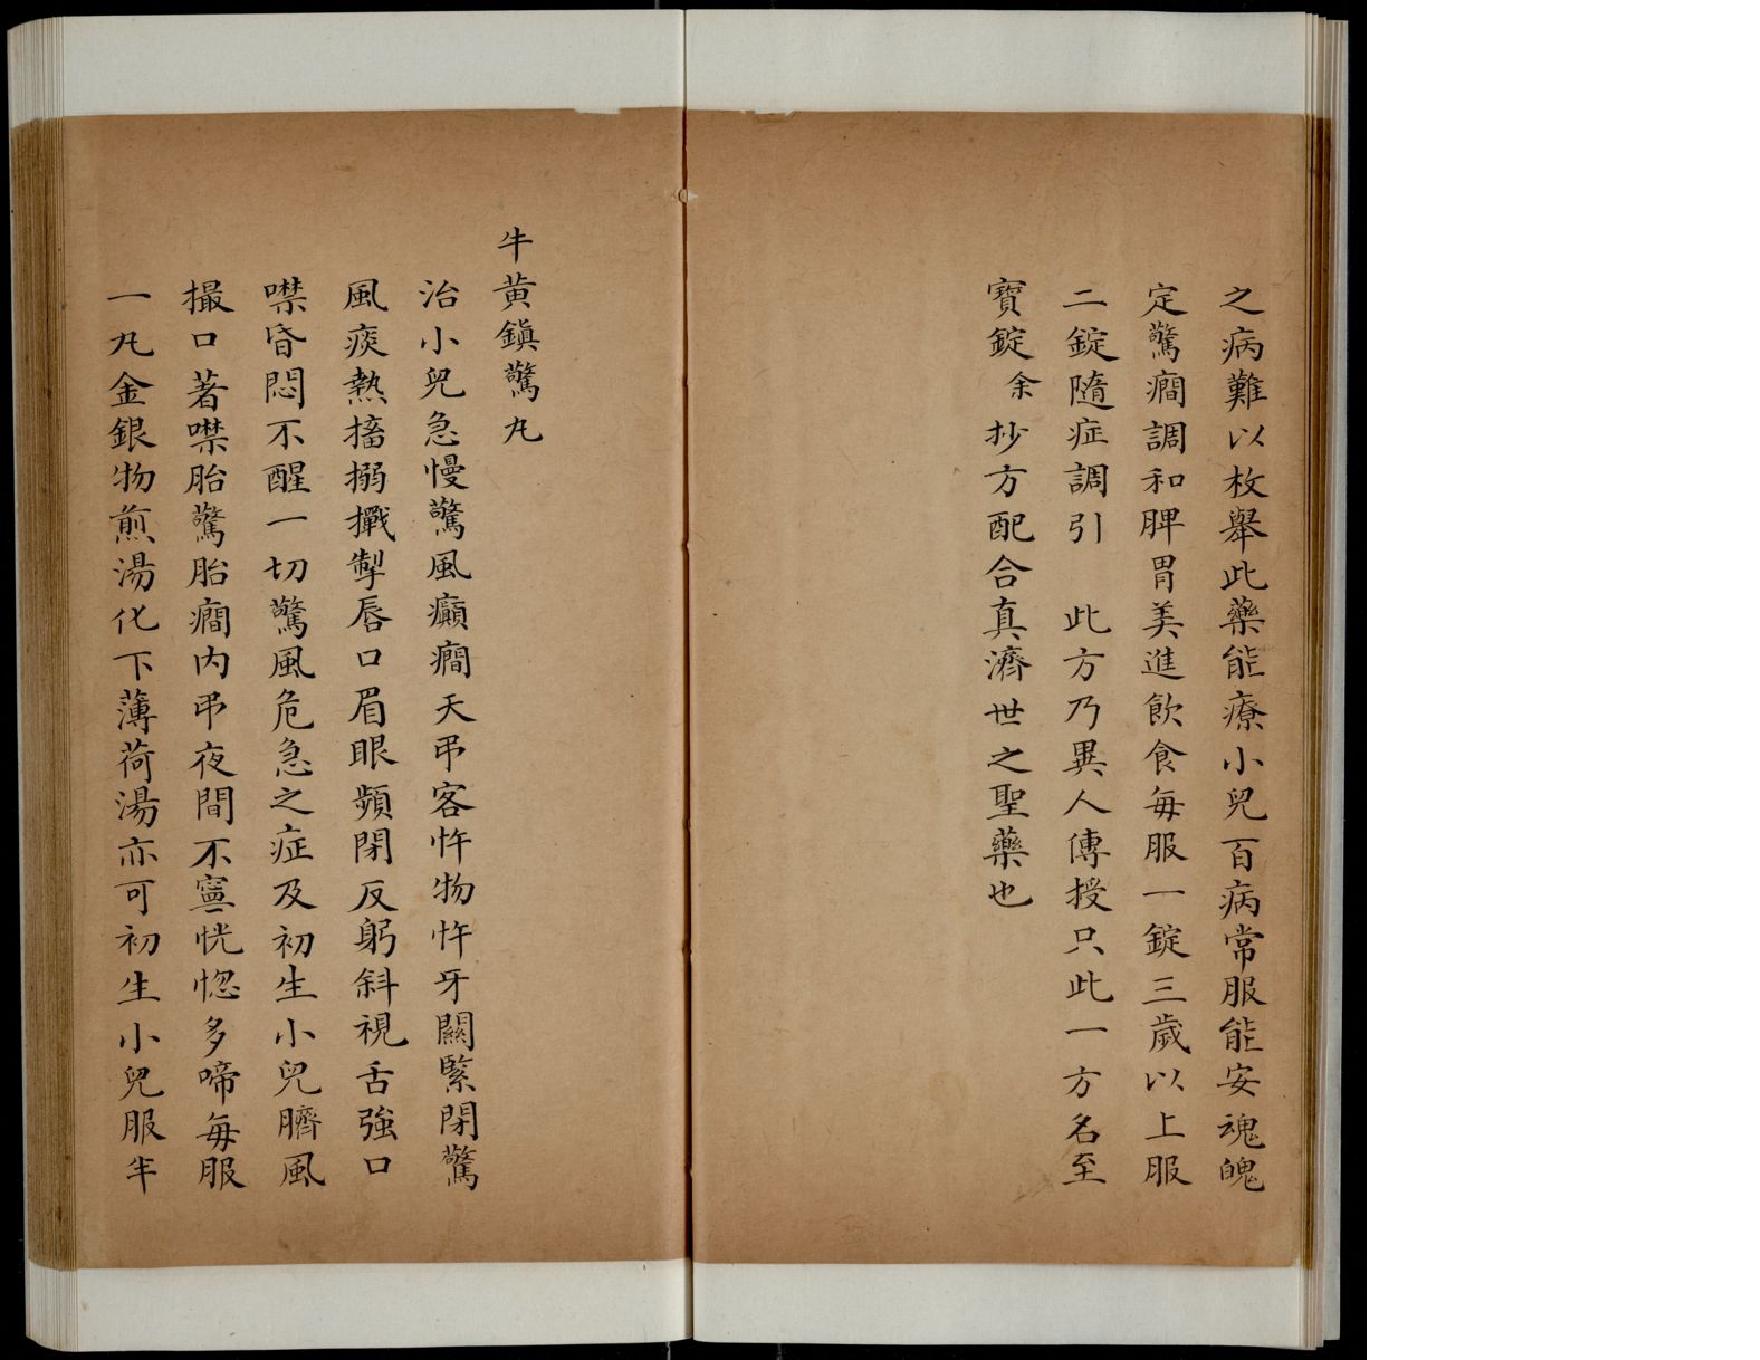 之病難以枚舉此藥能療小兒百病常服能安魂魄
定驚癇調和脾胃美進飲食每服一錠三歲以上服
二錠隨症調引　此方乃異人傳授只此一方名至
寶錠余抄方配合真濟世之聖藥也
牛黄鎮驚丸
治小兒急慢驚風癲癇天弔客忤物忤牙關緊閉驚
風痰熱搐搦攧掣唇口眉眼頻閉反躬斜視舌強口
噤昏悶不醒一切驚風危急之症及初生小兒臍風
撮口著噤胎驚胎癇内弔夜間不寧恍惚多啼每服
一丸金銀物煎湯化下薄荷湯亦可初生小兒服半